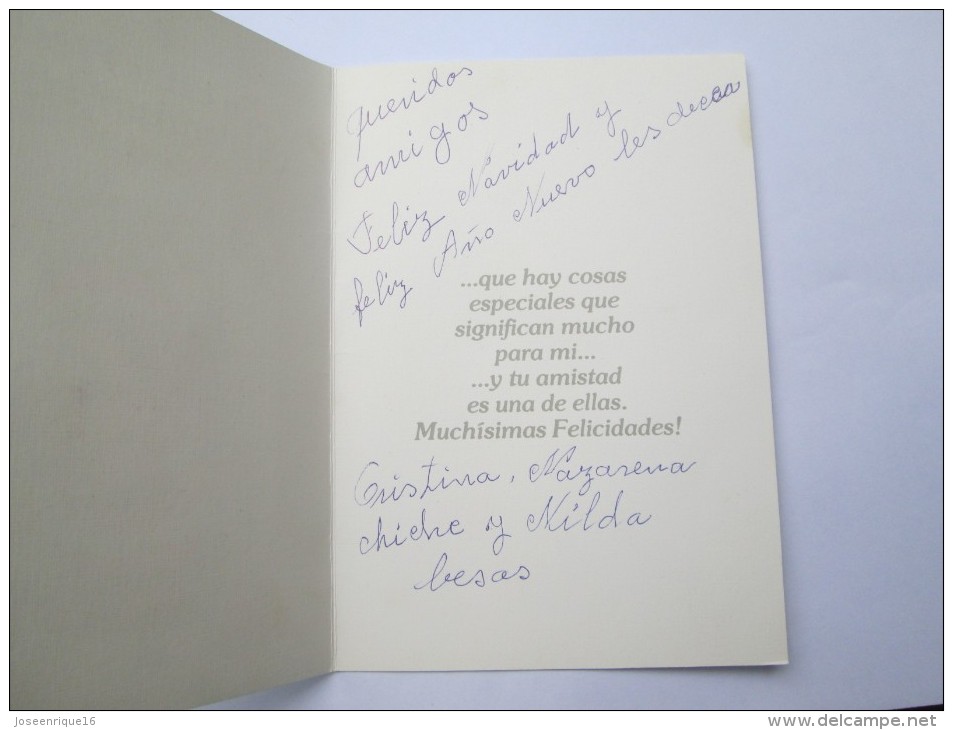 queridos
amigos
Feliz Navidad y
feliz Año Nuevo les desea
...que hay cosas
especiales que
significan mucho
para mi...
...y tu amistad
es una de ellas.
Muchísimas Felicidades!
Cristina, Nazarena
chiche y Nilda
besos
Joseenrique16
www.delcampe.net